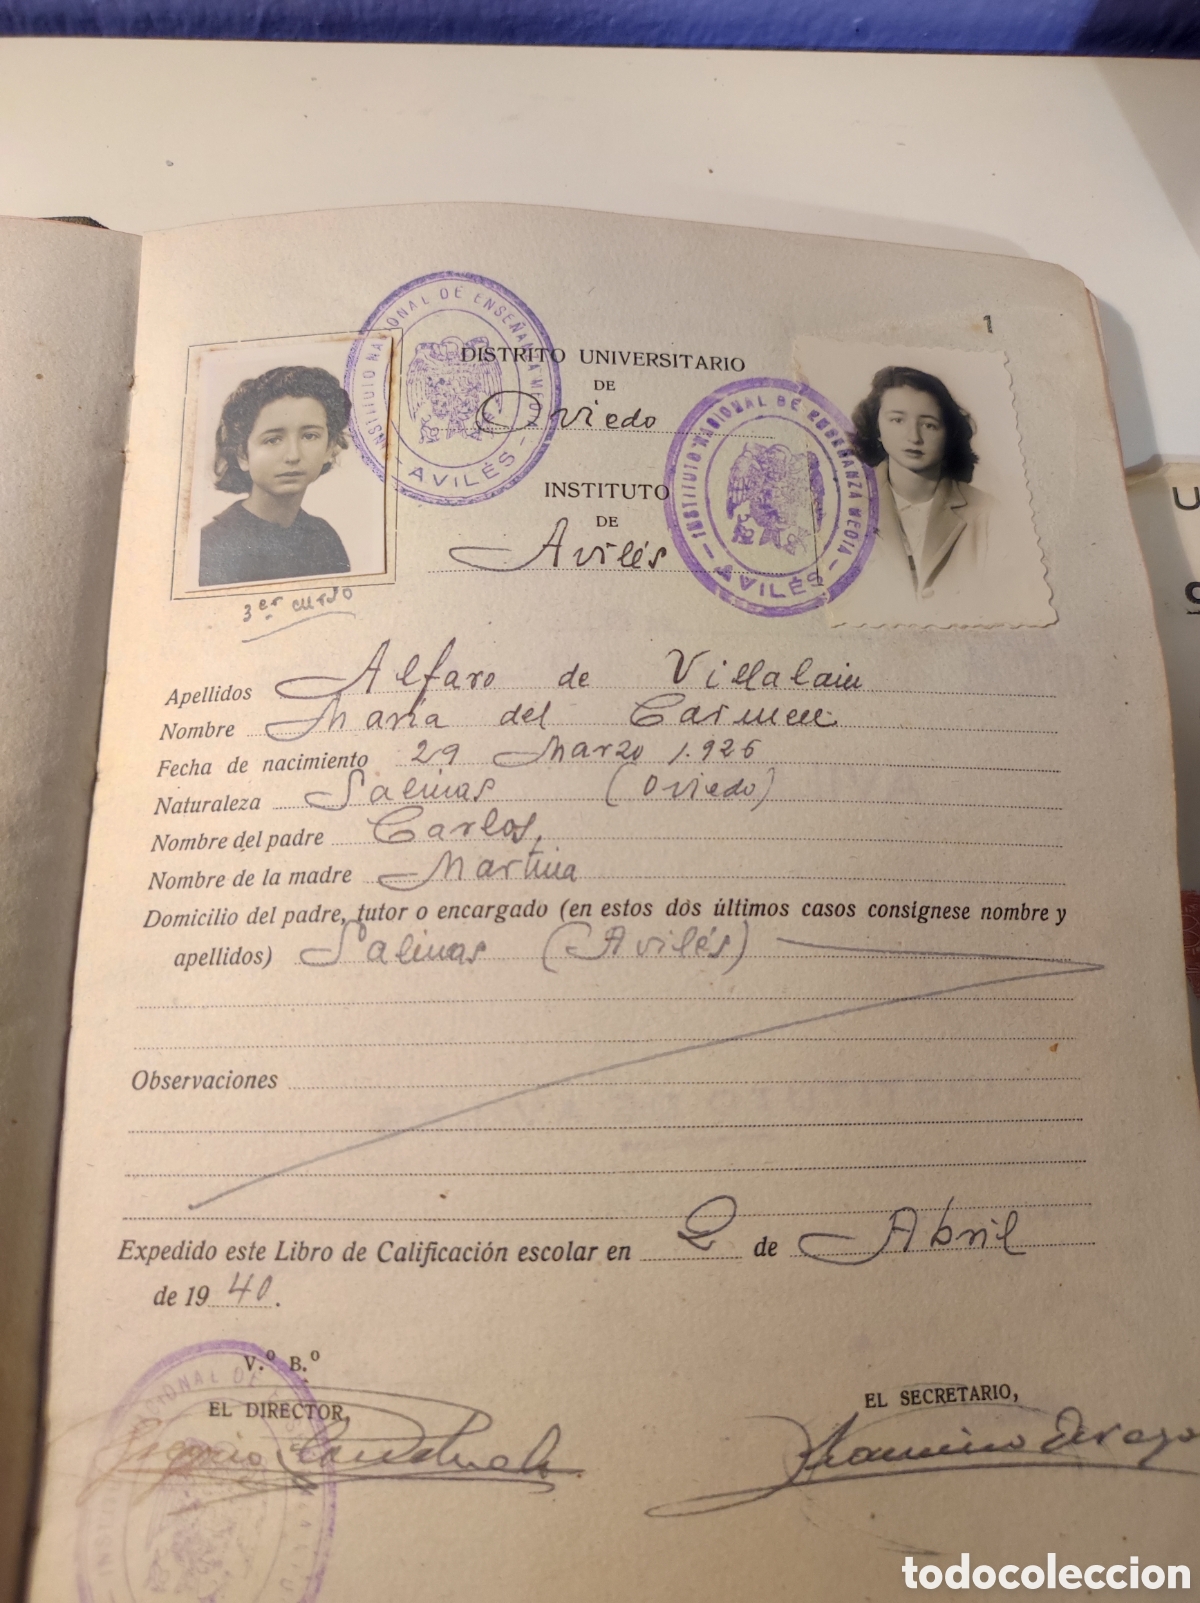 1
INSTITUTO NACIONAL DE ENSEÑANZA MEDIA
- AVILÉS -
DISTRITO UNIVERSITARIO
DE
Oviedo
INSTITUTO NACIONAL DE ENSEÑANZA MEDIA
- AVILÉS -
INSTITUTO
DE
Avilés
3er curso
Apellidos Alfaro de Villalain
Nombre Maria del Carmen
Fecha de nacimiento 29 Marzo 1.926
Naturaleza Salinas (Oviedo)
Nombre del padre Carlos,
Nombre de la madre Martina
Domicilio del padre, tutor o encargado (en estos dos últimos casos consígnese nombre y
apellidos) Salinas (Avilés)
Observaciones
Expedido este Libro de Calificación escolar en 2 de Abril
de 1940.
V.º B.º
EL DIRECTOR,
EL SECRETARIO,
U
todocoleccion